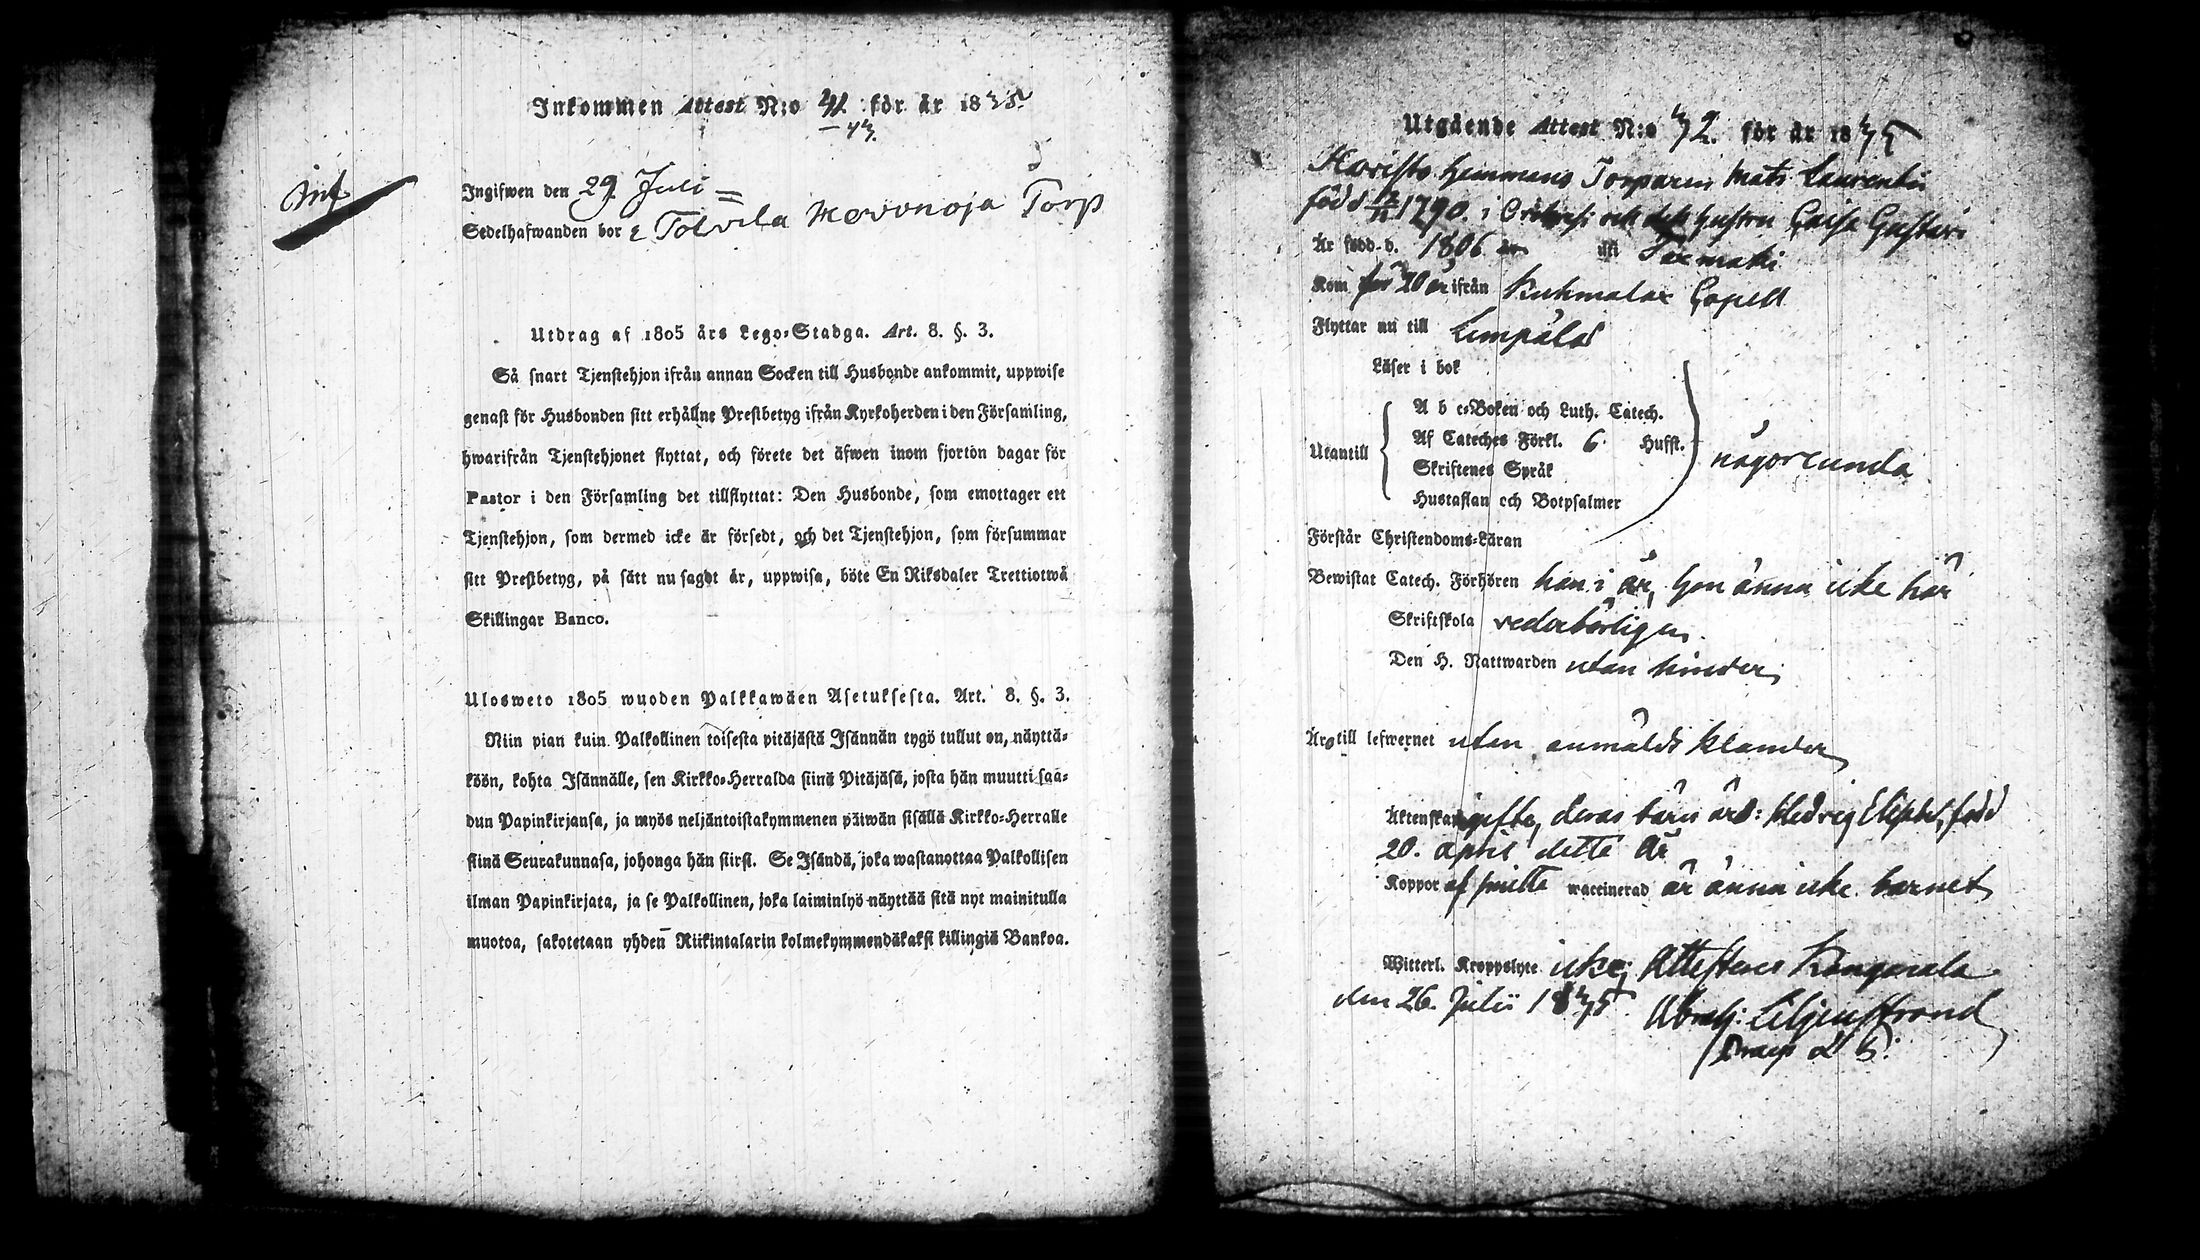 Inkommen Attest N:o 42. för år 1835.
— 43.
Inf
Ingifwen den 29 Juli =
Sedelhafwanden bor i Tolvila Torp
Utdrag af 1805 års Lego=Stadga. Art. 8. §. 3.
Så snart Tjenstehjon ifrån annan Socken till Husbonde ankommit, uppwise
genast för Husbonden sitt erhållne Prestbetyg ifrån Kyrkoherden i den Församling,
hwarifrån Tjenstehjonet flyttat, och förete det äfwen inom fjorton dagar för
Pastor i den Församling det tillflyttat: Den Husbonde, som emottager ett
Tjenstehjon, som dermed icke är försedt, och det Tjenstehjon, som försummar
sitt Prestbetyg, på sätt nu sagdt är, uppwisa, böte En Riksdaler Trettiotwå
Skillingar Banco.
Ulosweto 1805 wuoden Palkkawäen Asetuksesta. Art. 8. §. 3.
Niin pian kuin Palkollinen toisesta pitäjästä Isännän tygö tullut on, näyttä=
köön, kohta Isännälle, sen Kirkko=Herralda siinä Pitäjäsä, josta hän muutti saa=
dun Papinkirjansa, ja myös neljäntoistakymmenen päiwän sisällä Kirkko=Herralle
siinä Seurakunnasa, johonga hän siirsi. Se Isändä, joka wastanottaa Palkollisen
ilman Papinkirjata, ja se Palkollinen, joka laiminlyö näyttää sitä nyt mainitulla
muotoa, sakotetaan yhden Riikintalarin kolmekymmendäkaksi killingiä Bankoa.
Utgående Attest N:o 32. för år 1835
Haristo hemmans Torparen Mats Laurentii
född 1790. i och dess hustru Caisa Gustavs
Är född d. 1806 uti
Kom för 20 år ifrån Kuhmalax Capell
Flyttar nu till Lempälä
Läser i bok
A b c=Boken och Luth. Catech.
Utantill Af Cateches Förkl. 6 Huffst. någorlunda
Skriftenes Språk
Hustaflan och Botpsalmer
Förstår Christendoms=Läran
Bewistat Catech. Förhören han i år, hon ännu icke här
Skriftskola vederbörligen.
Den H. Nattwarden utan hinder,
Är till lefwernet utan anmäldt klander
Äktenskap gifte, deras barn är: Hedvig Elisabet, född
20. april detta år
Koppor af smitta waccinerad är ännu icke barnet
Witterl. Kroppslyte icke; Attesterar Kangasala
den 26. Julii 1835.
Abrah: Liljenstrand